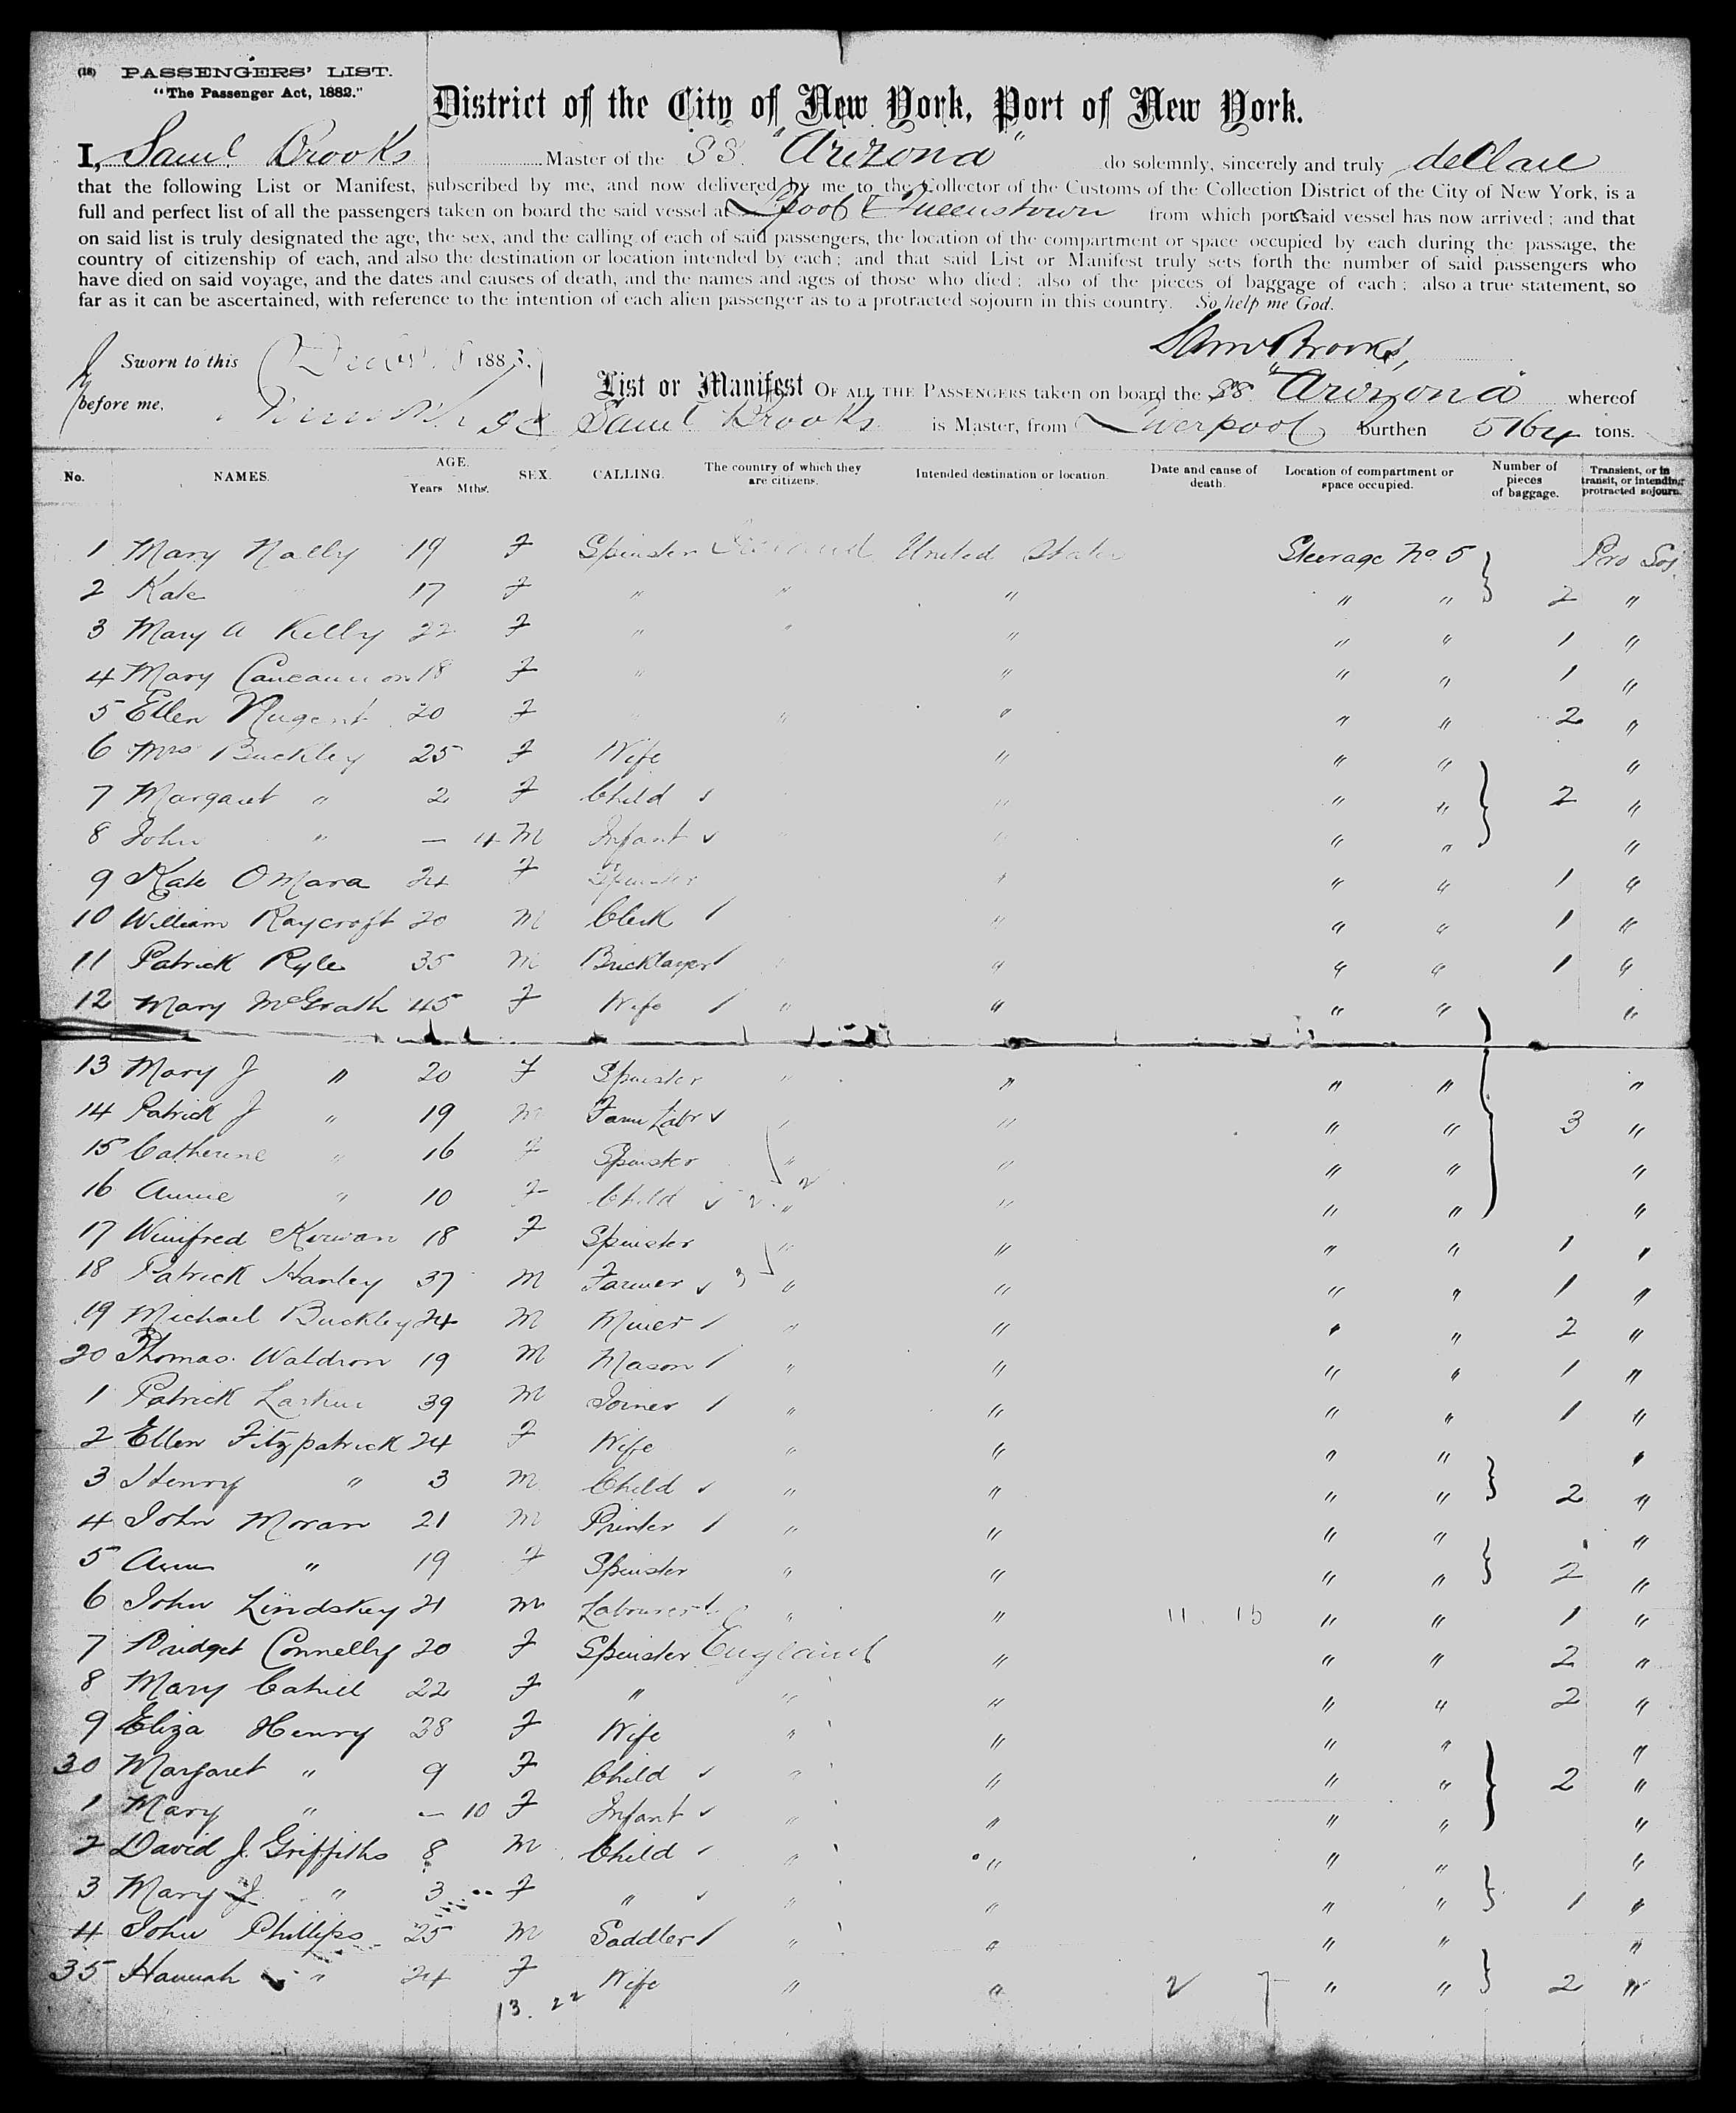 (18) PASSENGERS' LIST.
"The Passenger Act, 1882."
District of the City of New York, Port of New York.
I, Saml Brooks Master of the SS. "Arizona" do solemnly, sincerely and truly declare
that the following List or Manifest, subscribed by me, and now delivered by me to the Collector of the Customs of the Collection District of the City of New York, is a
full and perfect list of all the passengers taken on board the said vessel at L'pool & Queenstown from which ports said vessel has now arrived; and that
on said list is truly designated the age, the sex, and the calling of each of said passengers, the location of the compartment or space occupied by each during the passage, the
country of citizenship of each, and also the destination or location intended by each; and that said List or Manifest truly sets forth the number of said passengers who
have died on said voyage, and the dates and causes of death, and the names and ages of those who died; also of the pieces of baggage of each; also a true statement, so
far as it can be ascertained, with reference to the intention of each alien passenger as to a protracted sojourn in this country. So help me God.
Saml Brooks,
Sworn to this 1883.
before me.
List or Manifest OF ALL THE PASSENGERS taken on board the SS. "Arizona" whereof
Saml Brooks is Master, from Liverpool burthen 5164 tons.
No. NAMES. AGE. Years Mths. SEX. CALLING. The country of which they are citizens. Intended destination or location. Date and cause of death. Location of compartment or space occupied. Number of pieces of baggage. Transient, or in transit, or intending protracted sojourn.
1 Mary Nally 19 F Spinster Ireland United States Steerage No. 5 Pro Soj
2 Kate 17 F " " " " " 2 "
3 Mary A Kelly 22 F " " " " " 1 "
4 Mary 18 F " " " " 1 "
5 Ellen Nugent 20 F " " " " 2 "
6 Mrs Buckley 25 F Wife " " " "
7 Margaret " 2 F Child " " " 2 "
8 John " — 4 M Infant " " " " "
9 Kate O'Mara 24 F Spinster " " " 1 "
10 William Raycroft 20 M Clerk " " " 1 "
11 Patrick Ryle 35 M Bricklayer " " " " 1 "
12 Mary McGrath 45 F Wife " " " " "
13 Mary J " 20 F Spinster " " " " "
14 Patrick J " 19 M Farm Labr " " " " 3 "
15 Catherine " 16 F Spinster " " " " "
16 Annie " 10 F Child " " " " "
17 Winifred Kirwan 18 F Spinster " " " " 1 "
18 Patrick Hanley 37 M Farmer " " " " 1 "
19 Michael Buckley 24 M Miner " " " " 2 "
20 Thomas Waldron 19 M Mason " " " " 1 "
1 Patrick Larkin 39 M Joiner " " " " 1 "
2 Ellen Fitzpatrick 24 F Wife " " " " "
3 Henry " 3 M Child " " " " 2 "
4 John Moran 21 M Printer " " " " "
5 Ann " 19 F Spinster " " " " 2 "
6 John Lindskey 21 M Labourer " " 11. 15 " " 1 "
7 Bridget Connelly 20 F Spinster England " " " 2 "
8 Mary Cahill 22 F " " " " " 2 "
9 Eliza Henry 28 F Wife " " " " "
30 Margaret " 9 F Child " " " " 2 "
1 Mary " — 10 F Infant " " " " "
2 David J. Griffiths 8 M Child " " " " "
3 Mary J " 3 F " " " " " 1 "
4 John Phillips 25 M Saddler " " " " "
35 Hannah " 24 F Wife " " " " 2 "
13. 22